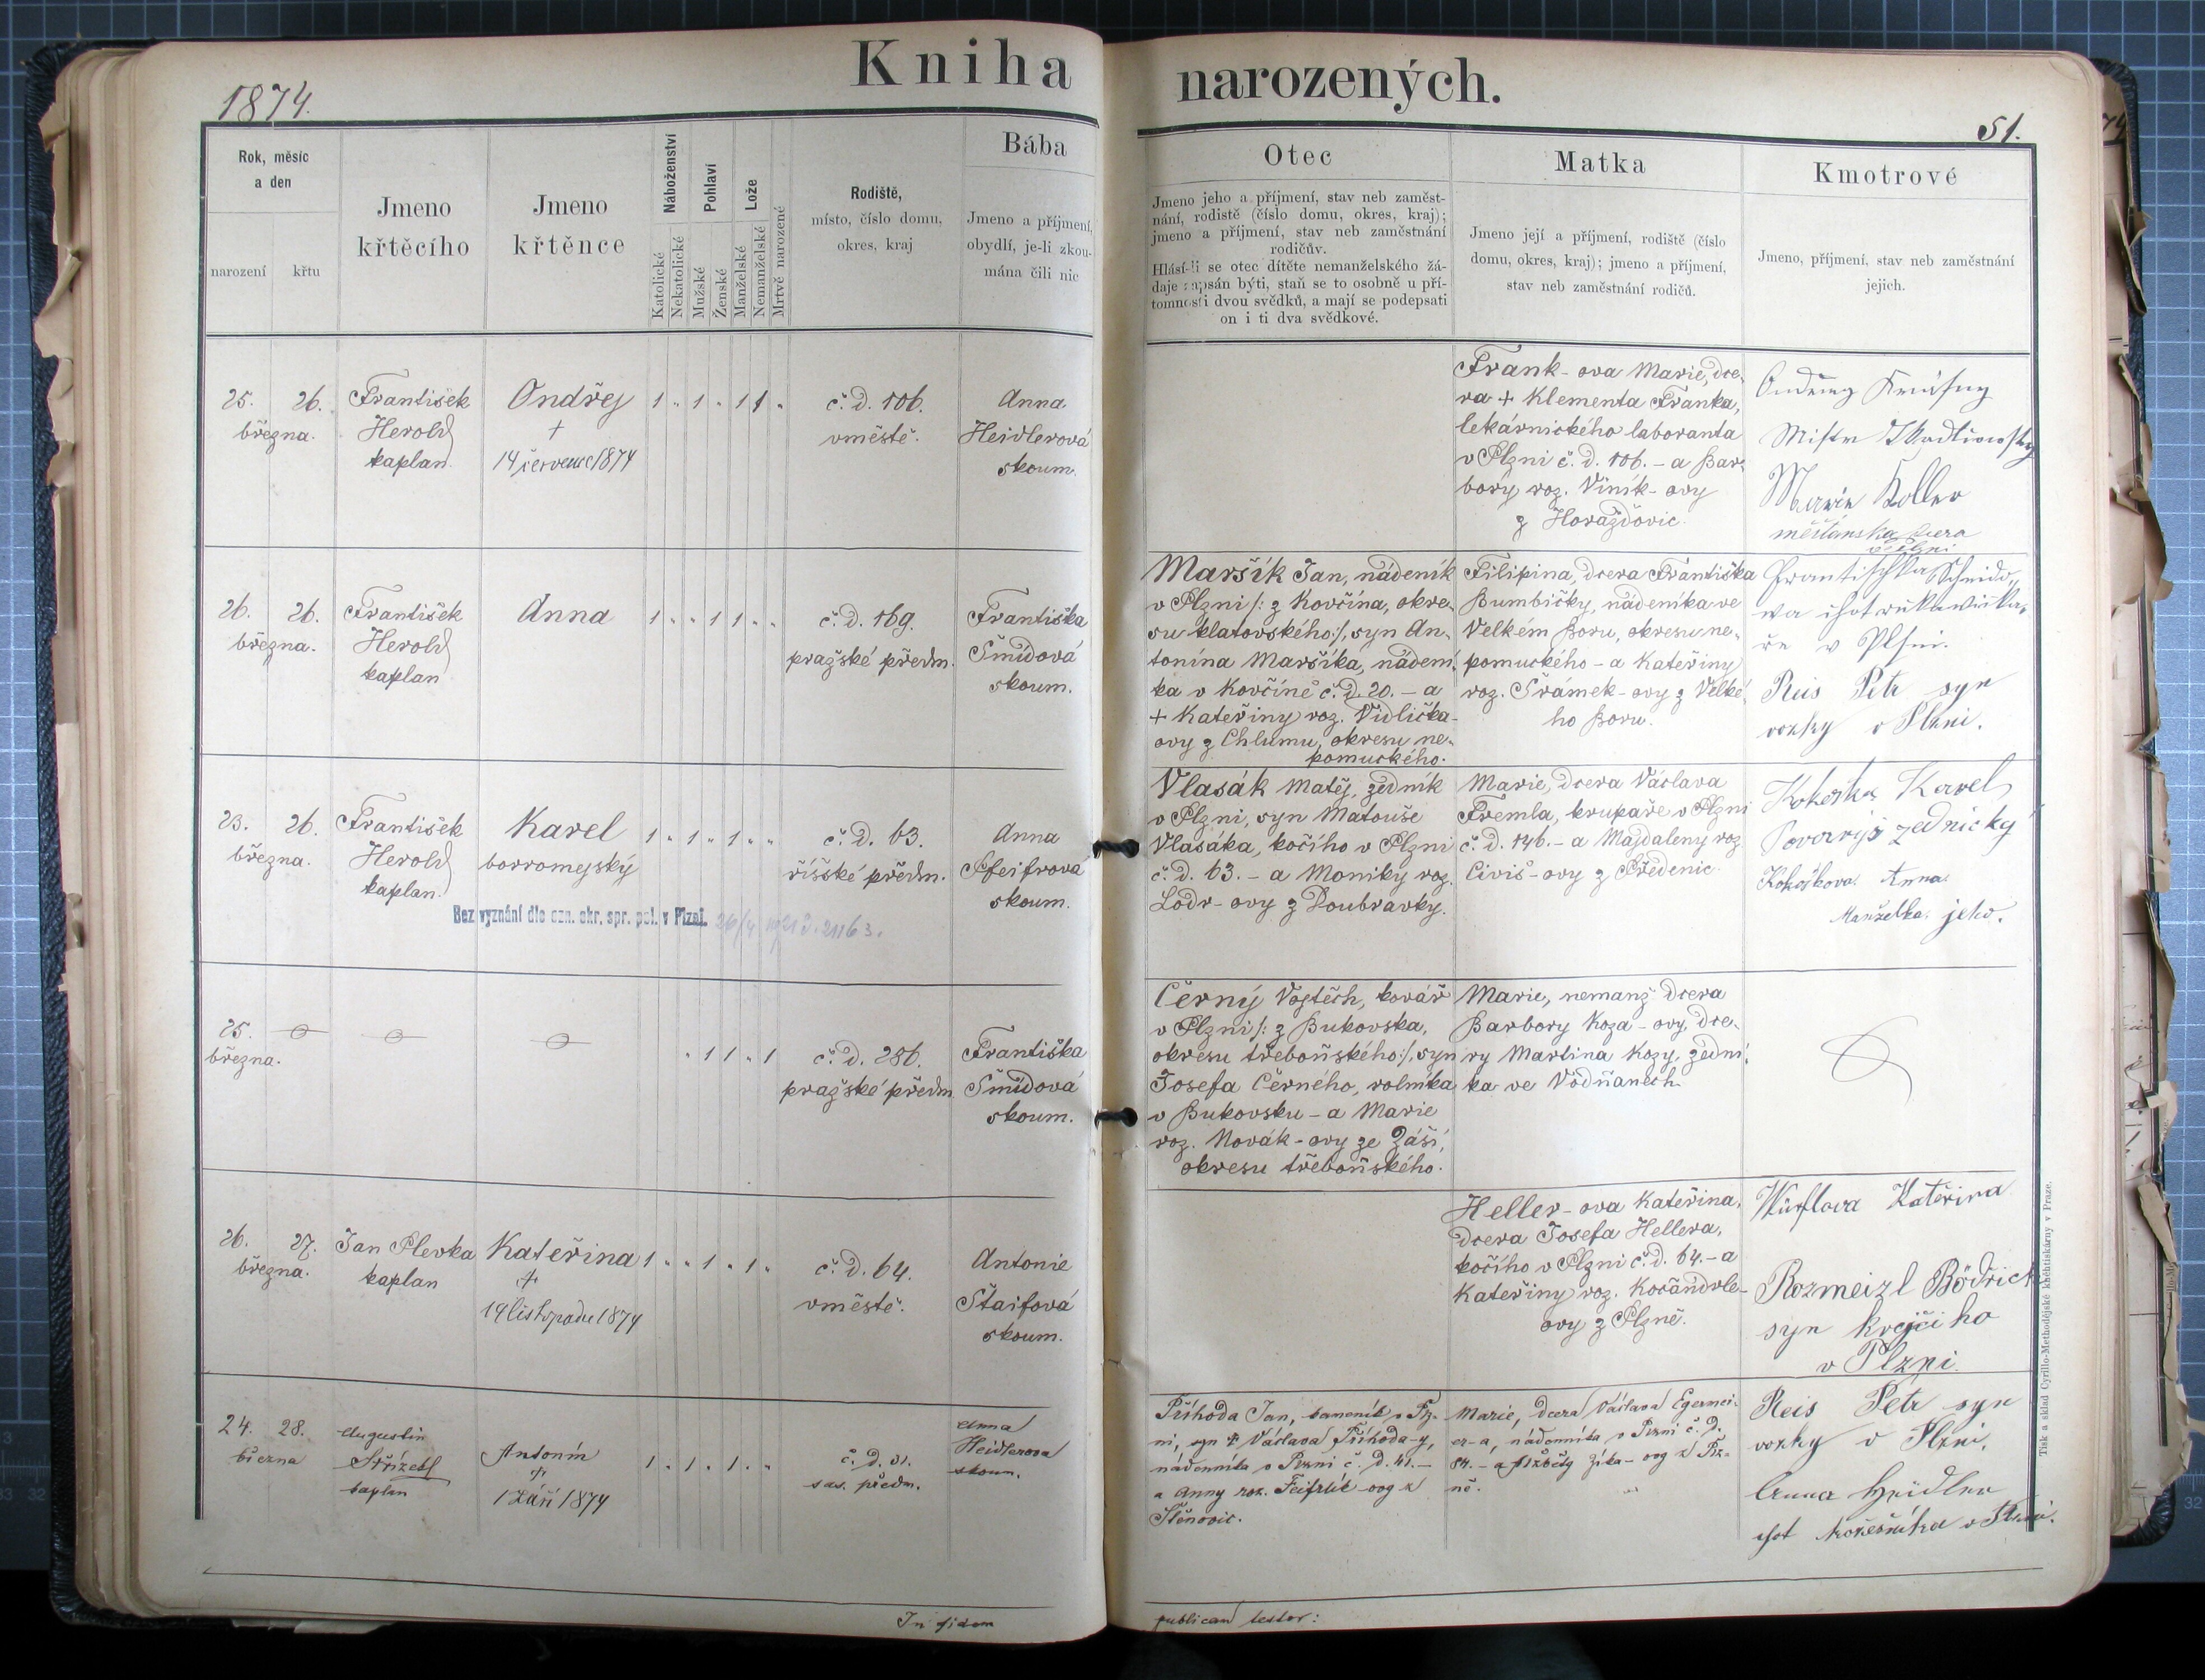 Kniha
narozených.
1874.
51.
Rok, měsíc
a den
narození
křtu
Jmeno
křtěcího
Jmeno
křtěnce
Náboženství
Katolické
Nekatolické
Pohlaví
Mužské
Ženské
Lože
Manželské
Nemanželské
Mrtvě narozené
Rodiště,
místo, číslo domu,
okres, kraj
Bába
Jmeno a příjmení,
obydlí, je-li zkou-
mána čili nic
Otec
Jmeno jeho a příjmení, stav neb zaměst-
nání, rodistě (číslo domu, okres, kraj);
jmeno a příjmení, stav neb zaměstnání
rodičův.
Hlásí-li se otec dítěte nemanželského žá-
daje zapsán býti, staň se to osobně u pří-
tomnosti dvou svědků, a mají se podepsati
on i ti dva svědkové.
Matka
Jmeno její a příjmení, rodiště (číslo
domu, okres, kraj); jmeno a příjmení,
stav neb zaměstnání rodičů.
Kmotrové
Jmeno, příjmení, stav neb zaměstnání
jejich.
25. 26.
března.
František
Herold
kaplan
Ondřej
+
14 července 1874
1 " 1 " 1 1 "
č. d. 106.
v městě.
Anna
Heidlerová
skoum.
Frank-ova Marie, dce-
ra + Klementa Franka,
lekárnického laboranta
v Plzni č. d. 106. – a Bar-
bory roz. Viník-ovy
z Horažďovic.
Marie Koller
měšťanska dcera
v Plzni
26. 26.
března.
František
Herold
kaplan
Anna
1 " " 1 1 " "
č. d. 169.
pražské předm.
Františka
Šmídová
skoum.
Maršík Jan, nádeník
v Plzni /: z Kovčína, okre-
su klatovského :/, syn An-
tonína Maršíka, nádení-
ka v Kovčíně č. d. 20. – a
+ Kateřiny roz. Vidlička-
ovy z Chlumu, okresu ne-
pomuckého.
Filipina, dcera Františka
Bumbičky, nádeníka ve
Velkém Boru, okresu ne-
pomuckého – a Kateřiny
roz. Šrámek-ovy z Velké-
ho Boru.
Reis Petr syn
vozky v Plzni.
23. 26.
března.
František
Herold
kaplan
Karel
borromejský
1 " 1 " 1 " "
č. d. 63.
říšské předm.
Anna
Pfeifrová
skoum.
Bez vyznání dle ozn. okr. spr. pol. v Plzni.
Vlasák Matěj, zedník
v Plzni, syn Matouše
Vlasáka, kočího v Plzni
č. d. 63. – a Moniky roz.
Lodr-ovy z Doubravky.
Marie, dcera Václava
Fremla, krupaře v Plzni
č. d. 146. – a Majdaleny roz.
Civiš-ovy z Předenic.
Kokoška Karel
Tovaryš zednický
Kokoškova Anna
Manželka jeho.
25.
března.
" 1 1 " 1
č. d. 286.
pražské předm.
Františka
Šmídová
skoum.
Černý Vojtěch, kovář
v Plzni /: z Bukovska,
okresu třeboňského :/, syn
Josefa Černého, rolníka
v Bukovsku – a Marie
roz. Novák-ovy ze Záší,
okresu třeboňského.
Marie, nemanž. dcera
Barbory Koza-ovy, dce-
ry Martina Kozy, zední-
ka ve Vodňanech.
26. 27.
března.
Jan Plevka
kaplan
Kateřina
+
14 listopadu 1874
1 " " 1 " 1 "
č. d. 64.
v městě.
Antonie
Štaifová
skoum.
Heller-ova Kateřina,
dcera Josefa Hellera,
kočího v Plzni č. d. 64. – a
Kateřiny roz. Kočandrle-
ovy z Plzně.
Würflova Kateřina
Rozmeizl Bödřich
syn krejčiho
v Plzni.
24. 28.
března
Augustin
Střízetl
kaplan
Antonín
+
1 Září 1874
1 " 1 " 1 " "
č. d. 31.
sas. předm.
Anna
Heidlerova
skoum.
Příhoda Jan, kameník v Plz-
ni, syn + Václava Příhoda-y,
nádenníka v Plzni č. d. 41. –
a Anny roz. Feifrlík-ovy z
Štěnovic.
Marie, dcera Václava Egermei-
er-a, nádenníka v Plzni č. d.
84. – a Alžběty Zíka-ovy z Plz-
ně.
Reis Petr syn
vozky v Plzni.
Anna Heidler
chot kožešníka v Plzni.
In fidem
publicam testor:
Tisk a sklad Cyrillo-Methodějské knihtiskárny v Praze.